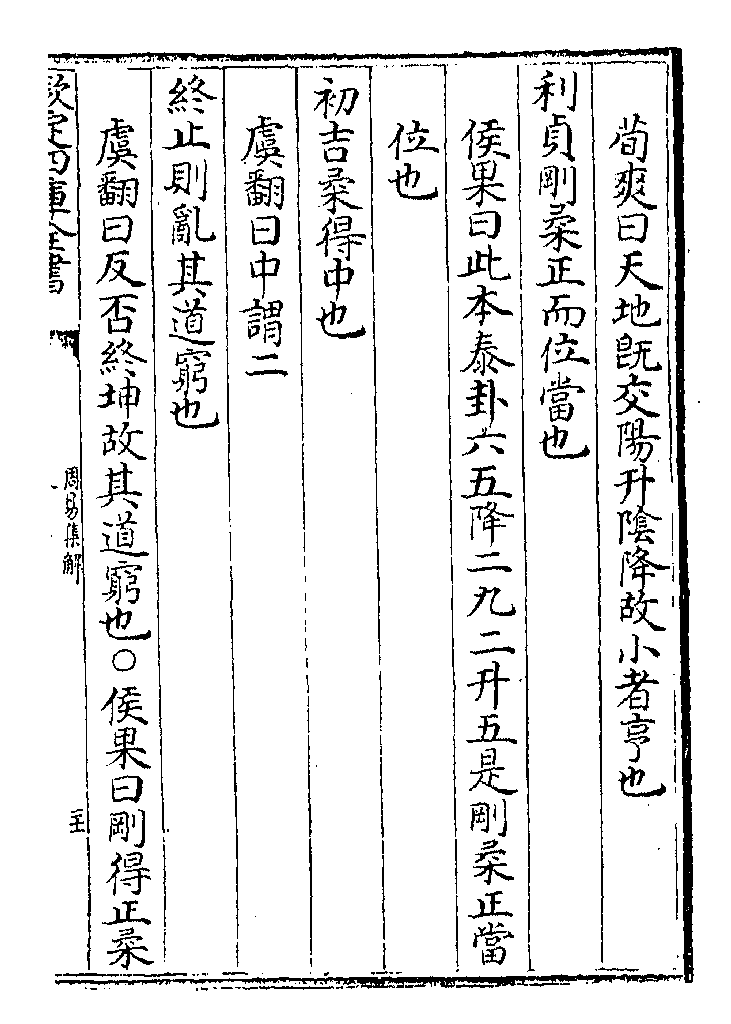 荀爽曰天地既交陽升陰降故小者亨也
利貞剛柔正而位當也
侯果曰此本泰卦六五降二九二升五是剛柔正當
位也
初吉柔得中也
虞翻曰中謂二
終止則亂其道窮也
虞翻曰反否終坤故其道窮也○侯果曰剛得正柔
欽定四庫全書
周易集解